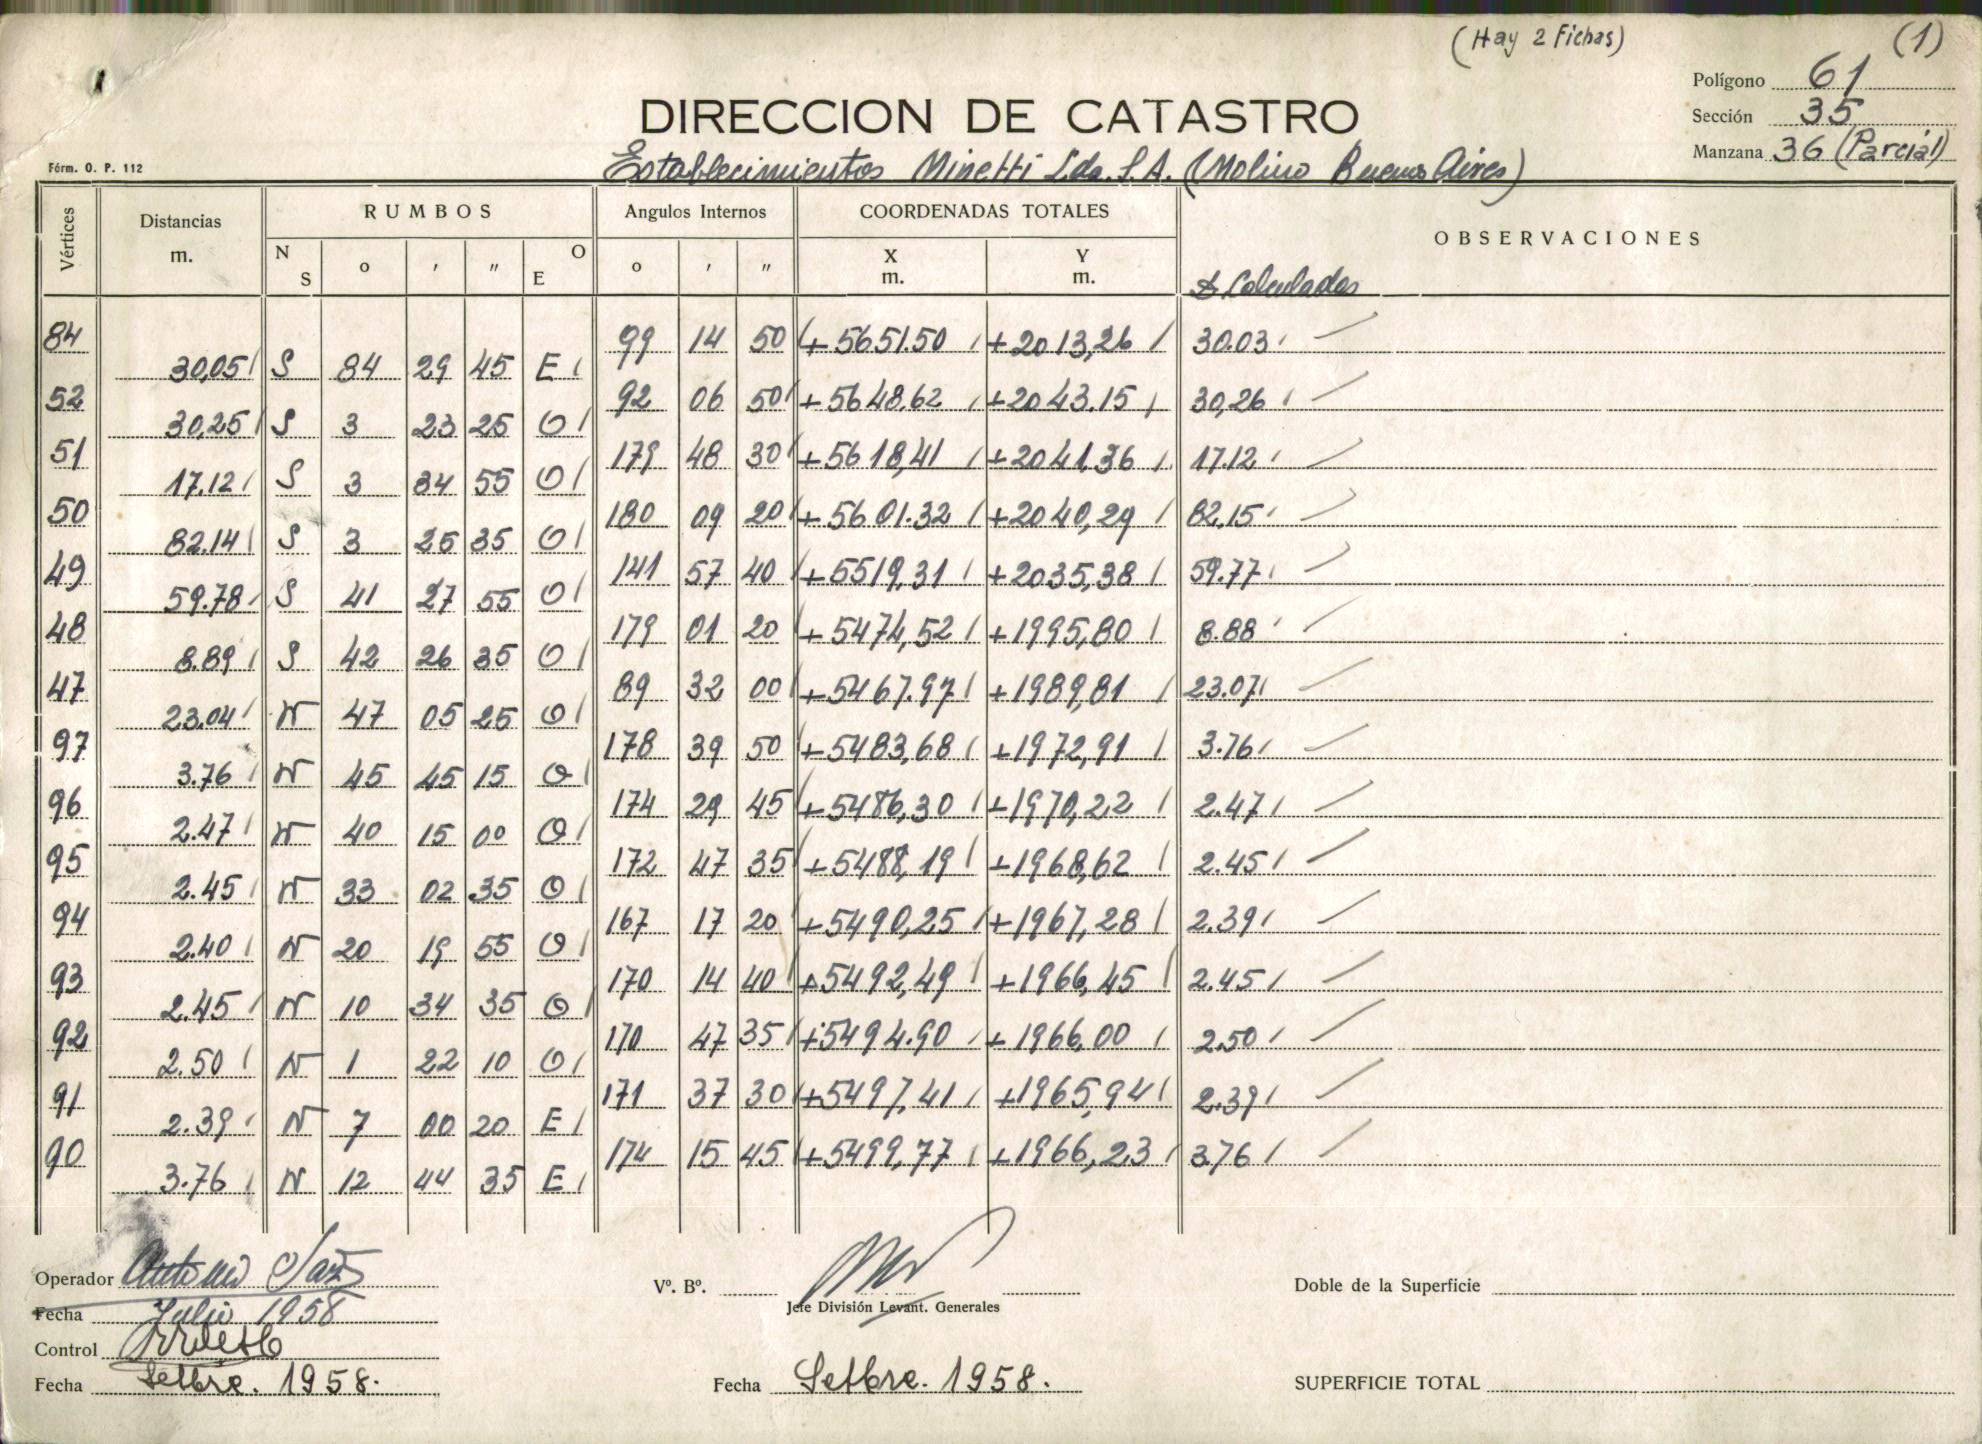 (Hay 2 Fichas) (1)
Polígono 61
DIRECCION DE CATASTRO
Sección 35
Manzana 36 (Parcial)
Fórm. O. P. 112
Establecimientos Minetti Lda. S.A. (Molino Buenos Aires)
Vértices Distancias m. RUMBOS Angulos Internos COORDENADAS TOTALES OBSERVACIONES
N S o ' " O E o ' " X m. Y m.
Calculadas
84 99 14 50 +5651.50 +2013,26 30.03
30,05 S 84 29 45 E
52 92 06 50 +5648.62 +2043.15 30,26
30,25 S 3 23 25 O
51 179 48 30 +5618,41 +2041,36 17.12
17.12 S 3 34 55 O
50 180 09 20 +5601.32 +2040,29 82,15
82.14 S 3 25 35 O
49 141 57 40 +5519,31 +2035,38 59.77
59.78 S 41 27 55 O
48 179 01 20 +5474,52 +1995,80 8.88
8.89 S 42 26 35 O
47 89 32 00 +5467.97 +1989,81 23.07
23.04 N 47 05 25 O
97 178 39 50 +5483,68 +1972,91 3.76
3.76 N 45 45 15 O
96 174 29 45 +5486,30 +1970,22 2.47
2.47 N 40 15 00 O
95 172 47 35 +5488,19 +1968,62 2.45
2.45 N 33 02 35 O
94 167 17 20 +5490,25 +1967,28 2.39
2.40 N 20 19 55 O
93 170 14 40 +5492,49 +1966,45 2.45
2.45 N 10 34 35 O
92 170 47 35 +5494.90 +1966,00 2.50
2.50 N 1 22 10 O
91 171 37 30 +5497,41 +1965,94 2.39
2.39 N 7 00 20 E
90 174 15 45 +5499,77 +1966,23 3.76
3.76 N 12 44 35 E
Operador Antonio
Vº. Bº.
Doble de la Superficie
Jefe División Levant. Generales
Fecha Julio 1958
Control
Fecha Setbre. 1958.
Fecha Setbre. 1958.
SUPERFICIE TOTAL